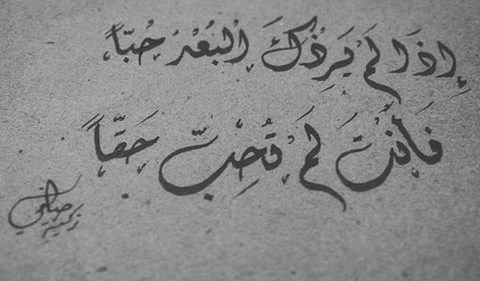 إِذَا لَمْ يَزِدْكَ الْبُعْدُ حُبّاً
فَأَنْتَ لَمْ تُحِبّ حَقّاً